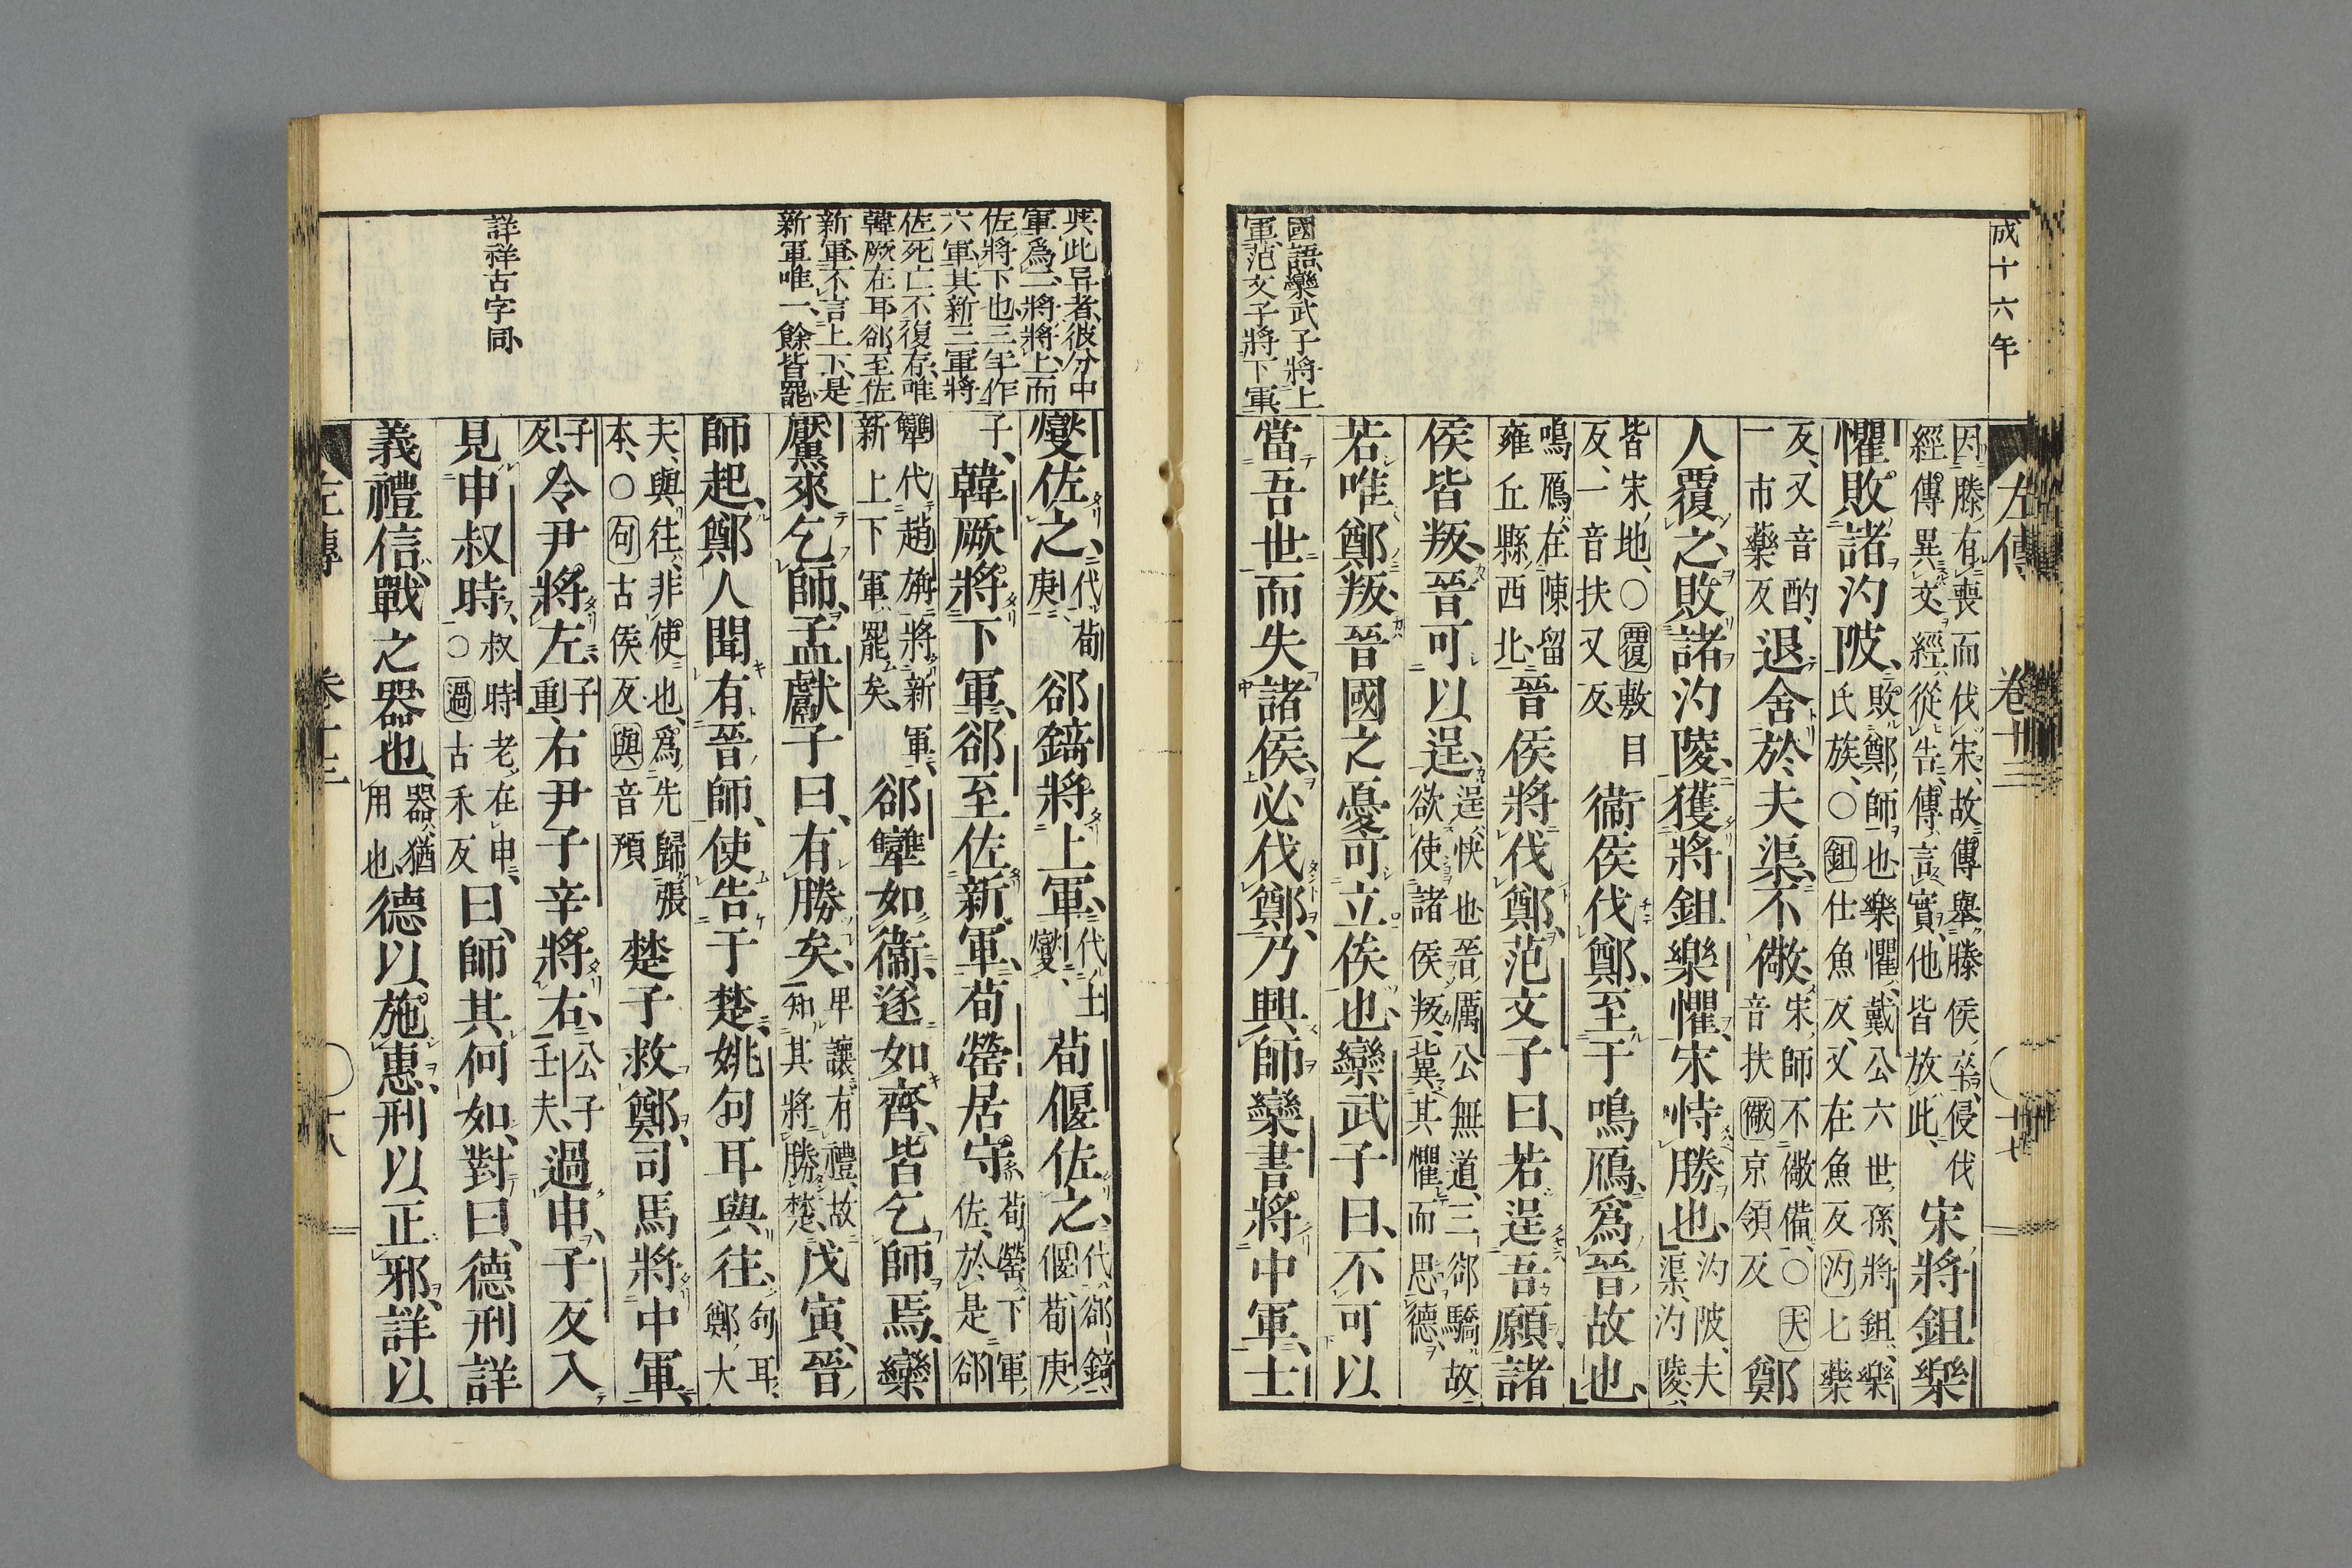 成十六年
左傳 卷十三 十七
因滕有喪而伐宋故傳舉滕侯卒侵伐
經傳異文經從告傳言實他皆放此 宋將鉏樂
懼敗諸汋陂 敗鄭師也樂懼戴公六世孫將鉏樂
氏族〇鉏仕魚反又在魚反汋七藥
反又音酌
一市藥反 退舍於夫渠不儆 宋師不儆備〇夫
音扶儆京領反 鄭
人覆之敗諸汋陵獲將鉏樂懼宋恃勝也 汋陂夫
渠汋陵
皆宋地〇覆敷目
反一音扶又反 衞侯伐鄭至于鳴鴈爲晉故也
鳴鴈在陳留
雍丘縣西北 晉侯將伐鄭范文子曰若逞吾願諸
侯皆叛晉可以逞 逞快也晉厲公無道三郤驕故
欲使諸侯叛冀其懼而思德
若唯鄭叛晉國之憂可立俟也欒武子曰不可以
當吾世而失諸侯必伐鄭乃興師欒書將中軍士
國語欒武子將上
軍范文子將下軍
與此异者彼分中
軍爲二將將上而
佐將下也三年作
六軍其新三軍將
佐死亡不復存唯
韓厥在耳郤至佐
新軍不言上下是
新軍唯一餘皆罷
詳祥古字同
燮佐之 代荀
庚 郤錡將上軍 代士
燮 荀偃佐之 代郤錡
偃荀庚
子 韓厥將下軍郤至佐新軍荀罃居守 荀罃下軍
佐於是郤
犨代趙旃將新軍
新上下軍罷矣 郤犨如衞遂如齊皆乞師焉欒
黶來乞師孟獻子曰有勝矣 卑讓有禮故
知其將勝楚 戊寅晉
師起鄭人聞有晉師使告于楚姚句耳與往 句耳
鄭大
夫與往非使也爲先歸張
本〇句古侯反與音預 楚子救鄭司馬將中軍
子
反 令尹將左 子
重 右尹子辛將右 公子
壬夫 過申子反入
見申叔時 叔時老在申
〇過古禾反 曰師其何如對曰德刑詳
義禮信戰之器也 器猶
用也 德以施惠刑以正邪詳以
左傳 卷十三 十八